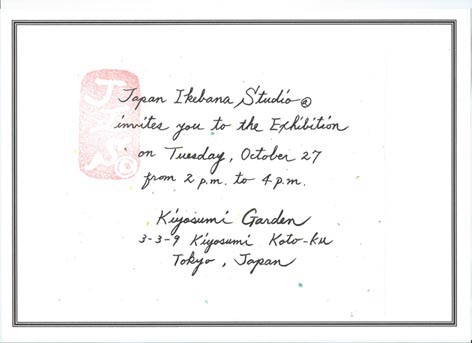 JIS@
Japan Ikebana Studio@
invites you to the Exhibition
on Tuesday, October 27
from 2 p.m. to 4 p.m.
Kiyosumi Garden
3-3-9 Kiyosumi Koto-ku
Tokyo, Japan